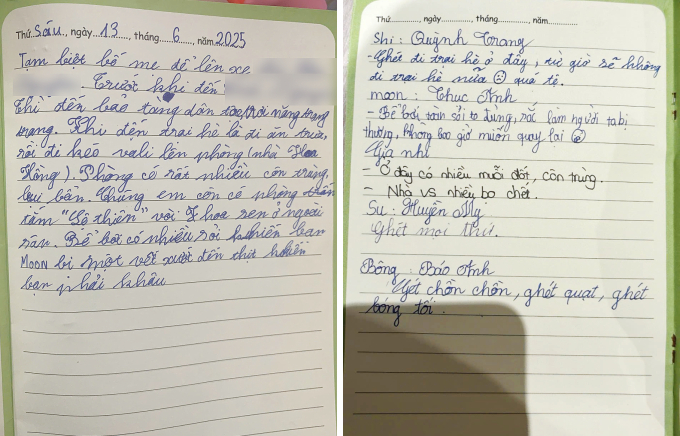 Thứ Sáu, ngày 13, tháng 6, năm 2025
Tạm biệt bố mẹ để lên xe
Trước khi đến
thì đến bảo tàng dân tộc, trời nắng trang
trang. Khi đến trại hè là đi ăn trưa,
rồi đi kéo vali lên phòng (nhà Hoa
Hồng). Phòng có rất nhiều côn trùng,
bụi bẩn. Chúng em còn có phòng
tắm "Lộ thiên" với 1 hoa sen ở ngoài
sân. Bể bơi có nhiều sỏi khiến bạn
MOON bị một vết xướt đến thịt khiến
bạn phải khâu
Thứ, ngày, tháng, năm
Shi: Quỳnh Trang
- Ghét đi trại hè ở đây, từ giờ sẽ không
đi trại hè nữa quá tệ.
moon: Thục Anh
- Bể bơi toàn sỏi to đùng, rất làm người ta bị
thương, không bao giờ muốn quay lại
Gia nhi
- Ở đây có nhiều muỗi đốt, côn trùng.
- Nhà vs nhiều bọ chết.
Su: Huyền My
Ghét mọi thứ.
Bông: Bảo Anh
Ghét chồn chồn, ghét quạt, ghét
bóng tối.